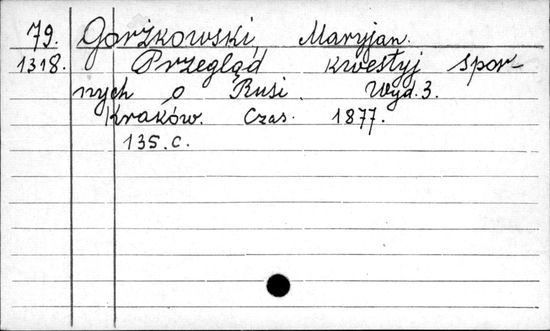 79. Gorżkowski, Maryjan.
1318. Przegląd kwestyj spor-
nych o Rusi. Wyd. 3.
Kraków. Czas. 1877.
135.c.